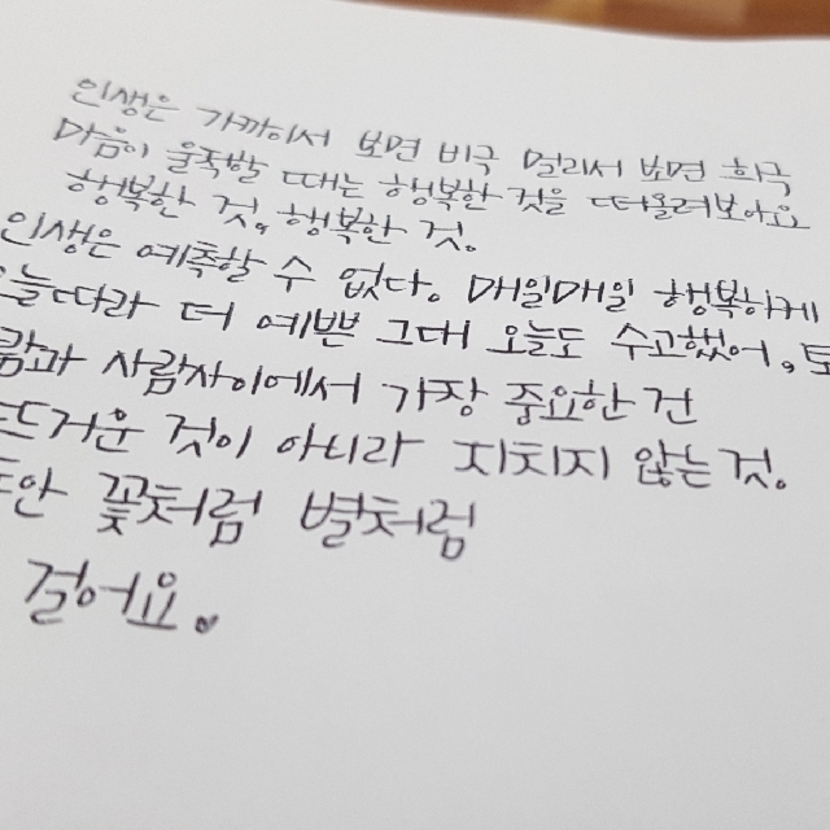 인생은 가까이서 보면 비극 멀리서 보면 희극
마음이 울적할 때는 행복한 것을 떠올려보아요
행복한 것, 행복한 것.
인생은 예측할 수 없다. 매일매일 행복하게
오늘따라 더 예쁜 그대 오늘도 수고했어, 토
람과 사람사이에서 가장 중요한 건
뜨거운 것이 아니라 지치지 않는것.
안 꽃처럼 별처럼
걸어요.